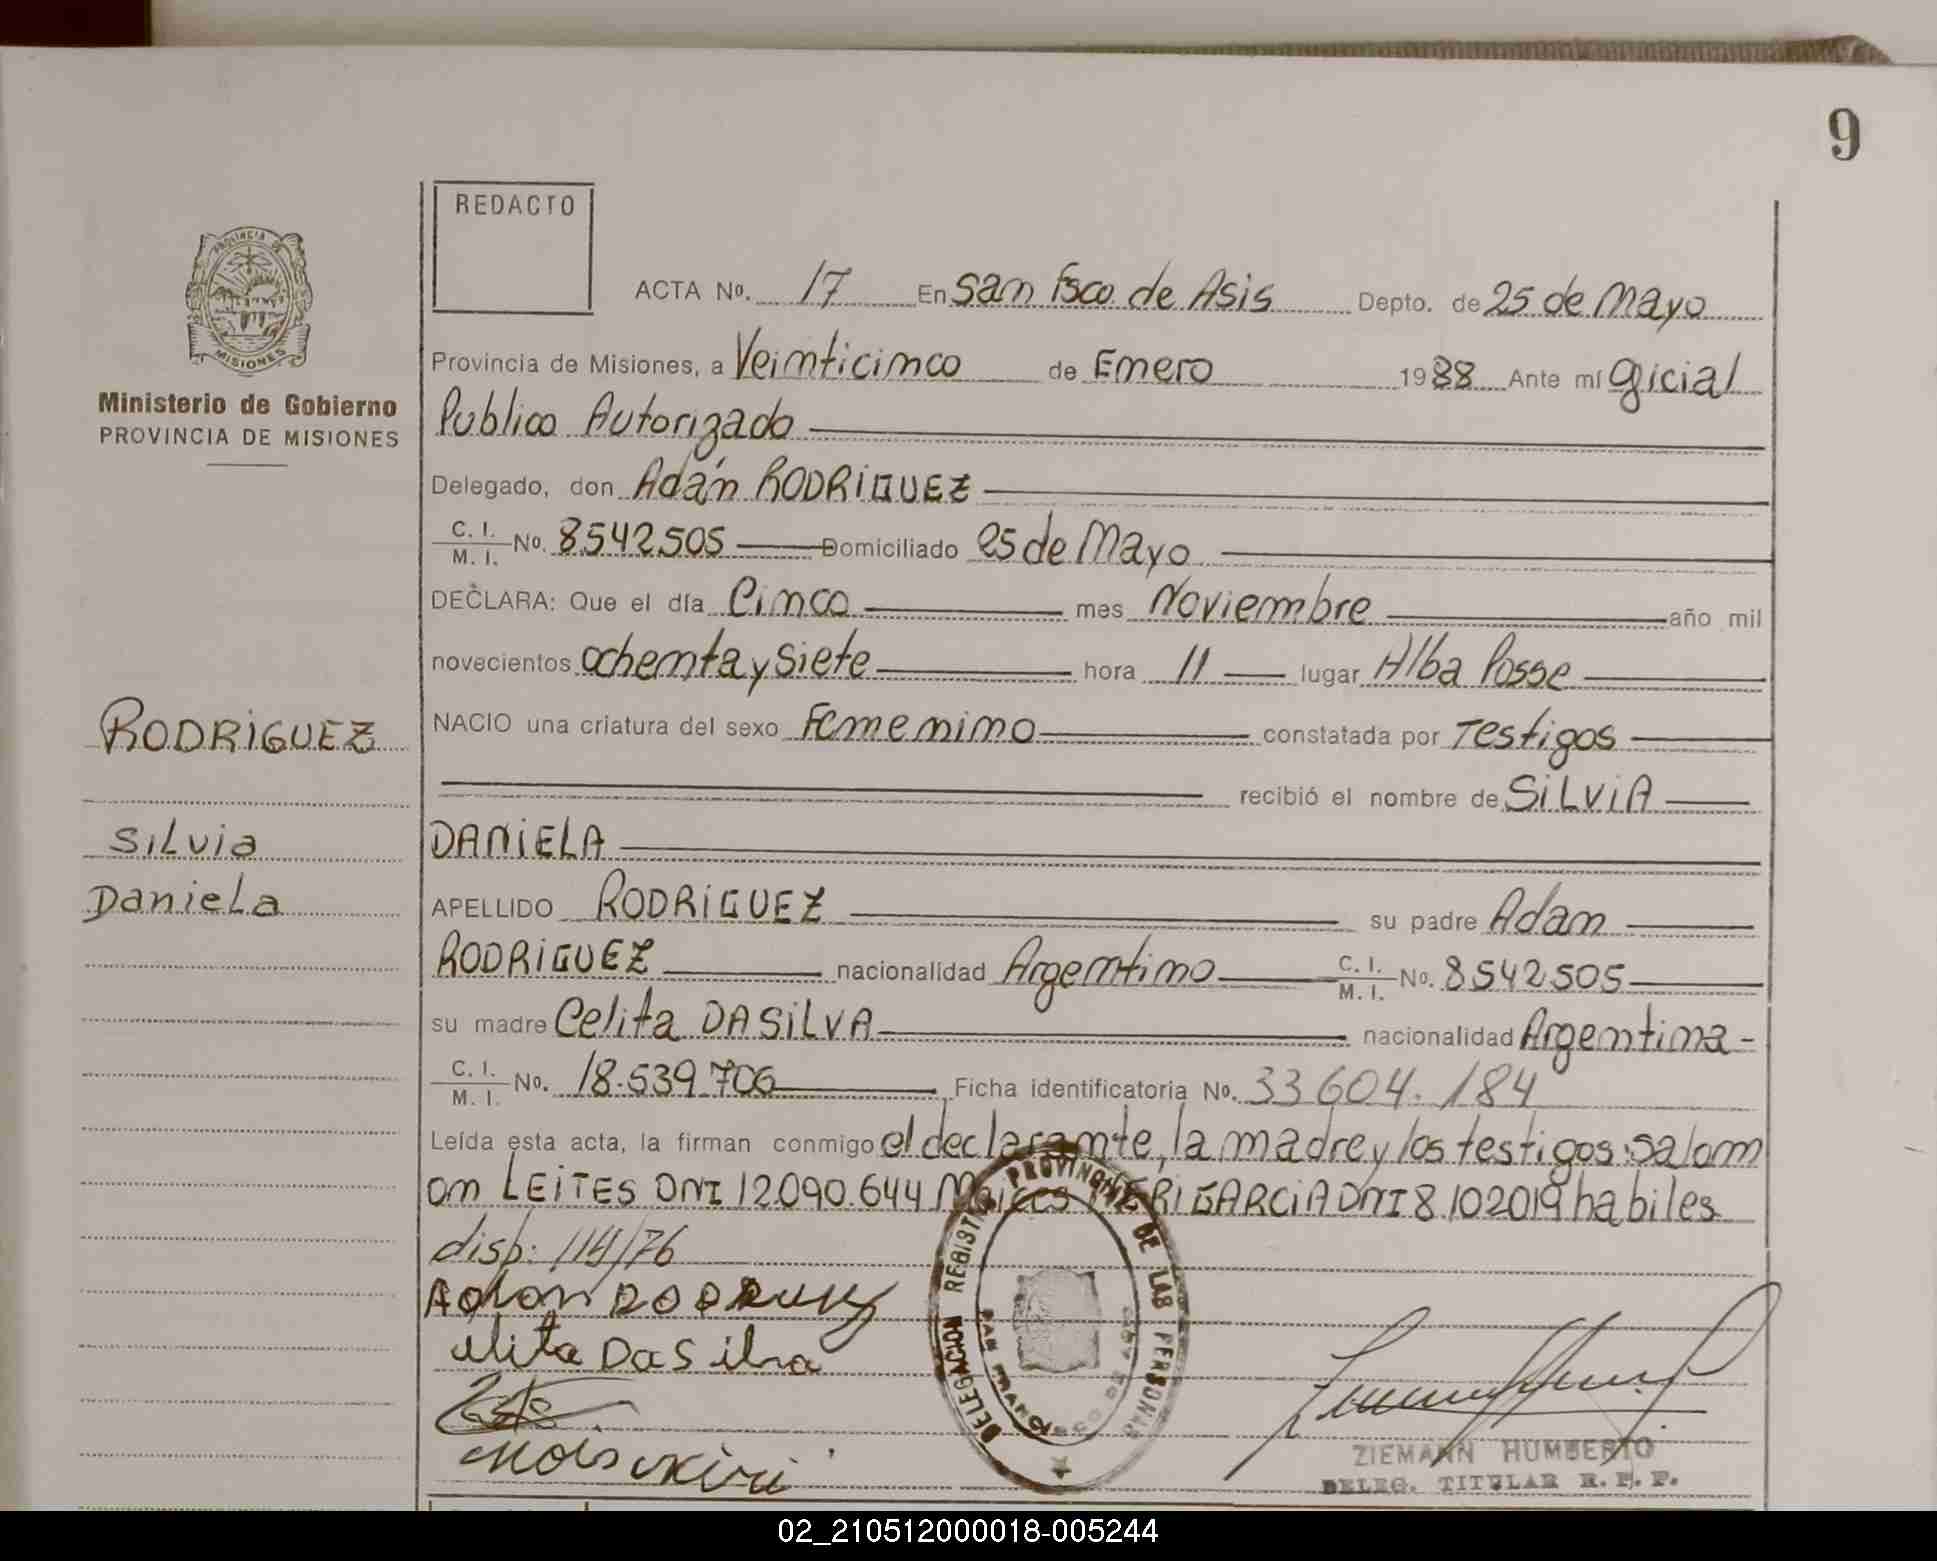 9
REDACTO
PROVINCIA DE
MISIONES
Ministerio de Gobierno
PROVINCIA DE MISIONES
ACTA Nº. 17 En San Fsco de Asis Depto. de 25 de Mayo
Provincia de Misiones, a Veinticinco de Enero 1988 Ante mí Oficial
Publico Autorizado
Delegado, don Adán RODRIGUEZ
C. I. / M. I. Nº. 8542505 Domiciliado 25 de Mayo
DECLARA: Que el día Cinco mes Noviembre año mil
novecientos ochenta y siete hora 11 lugar Alba Posse
NACIO una criatura del sexo Femenino constatada por Testigos
recibió el nombre de SILVIA
DANIELA
APELLIDO RODRIGUEZ su padre Adam
RODRIGUEZ nacionalidad Argentino C. I. / M. I. Nº. 8542505
su madre Celita DASILVA nacionalidad Argentina -
C. I. / M. I. Nº. 18.539.706 Ficha identificatoria Nº. 33604.184
Leída esta acta, la firman conmigo el declarante, la madre y los testigos: Salom
on LEITES DNI 12.090.644 GARCIA DNI 8.102019 habiles
disp: 114/76
RODRIGUEZ
Silvia
Daniela
Da Silva
DELEGACION REGISTRO PROVINCIAL DE LAS PERSONAS
SAN FRANCISCO DE ASIS
ZIEMANN HUMBERTO
DELEG. TITULAR R. P. P.
02_210512000018-005244